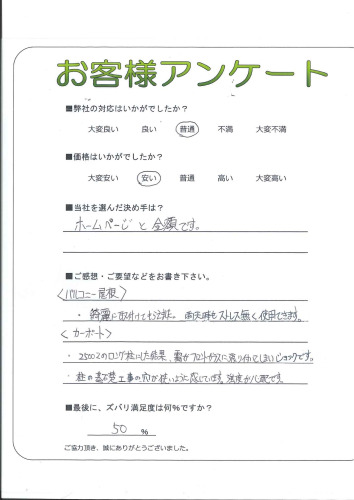 お客様アンケート
■弊社の対応はいかがでしたか？
大変良い 良い 普通 不満 大変不満
■価格はいかがでしたか？
大変安い 安い 普通 高い 大変高い
■当社を選んだ決め手は？
ホームページと金額です。
■ご感想・ご要望などをお書き下さい。
〈バルコニー屋根〉
・綺麗に取付けてもらえた。雨天時もストレス無く使用できます。
〈カーポート〉
・2500ミのロング柱にした結果、霜がフロントガラスに張り付いてしまいショックです。
・柱の基礎工事の穴が狭いように感じています。強度が心配です。
■最後に、ズバリ満足度は何%ですか？
50 %
ご協力頂き、誠にありがとうございました。